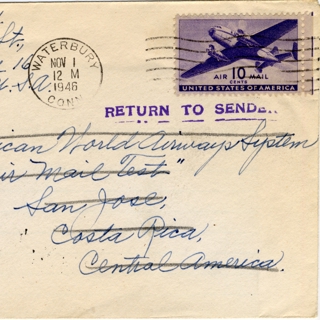 WATERBURY
NOV 1
12 M
1946
CONN
AIR 10 MAIL
CENTS
UNITED STATES OF AMERICA
RETURN TO SENDER
ican World Airways System
ir Mail Test"
San Jose,
Costa Rica,
Central America.